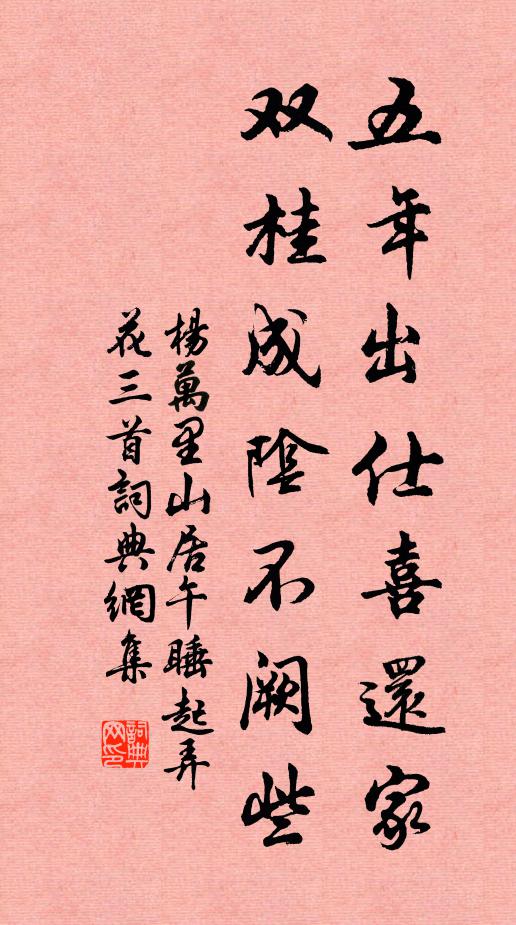 五年出仕喜還家
双桂成陰不闕些
楊萬里山居午睡起弄
花三首詞典網集
詞典
网印